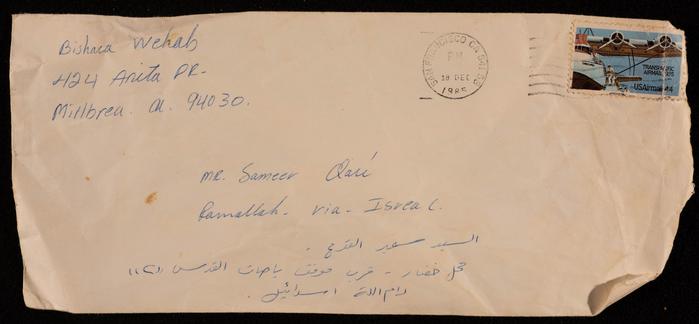 Bishara Wehab
424 Anita DR-
Millbrea. Ca. 94030.
SAN FRANCISCO CA
PM
18 DEC
1985
TRANSPACIFIC
AIRMAIL 1935
USAirmail 44
MR. Sameer
Ramallah - via - Israel.
السيد سمير
محل خضار - قرب موقف باصات القدس
رام الله اسرائيل